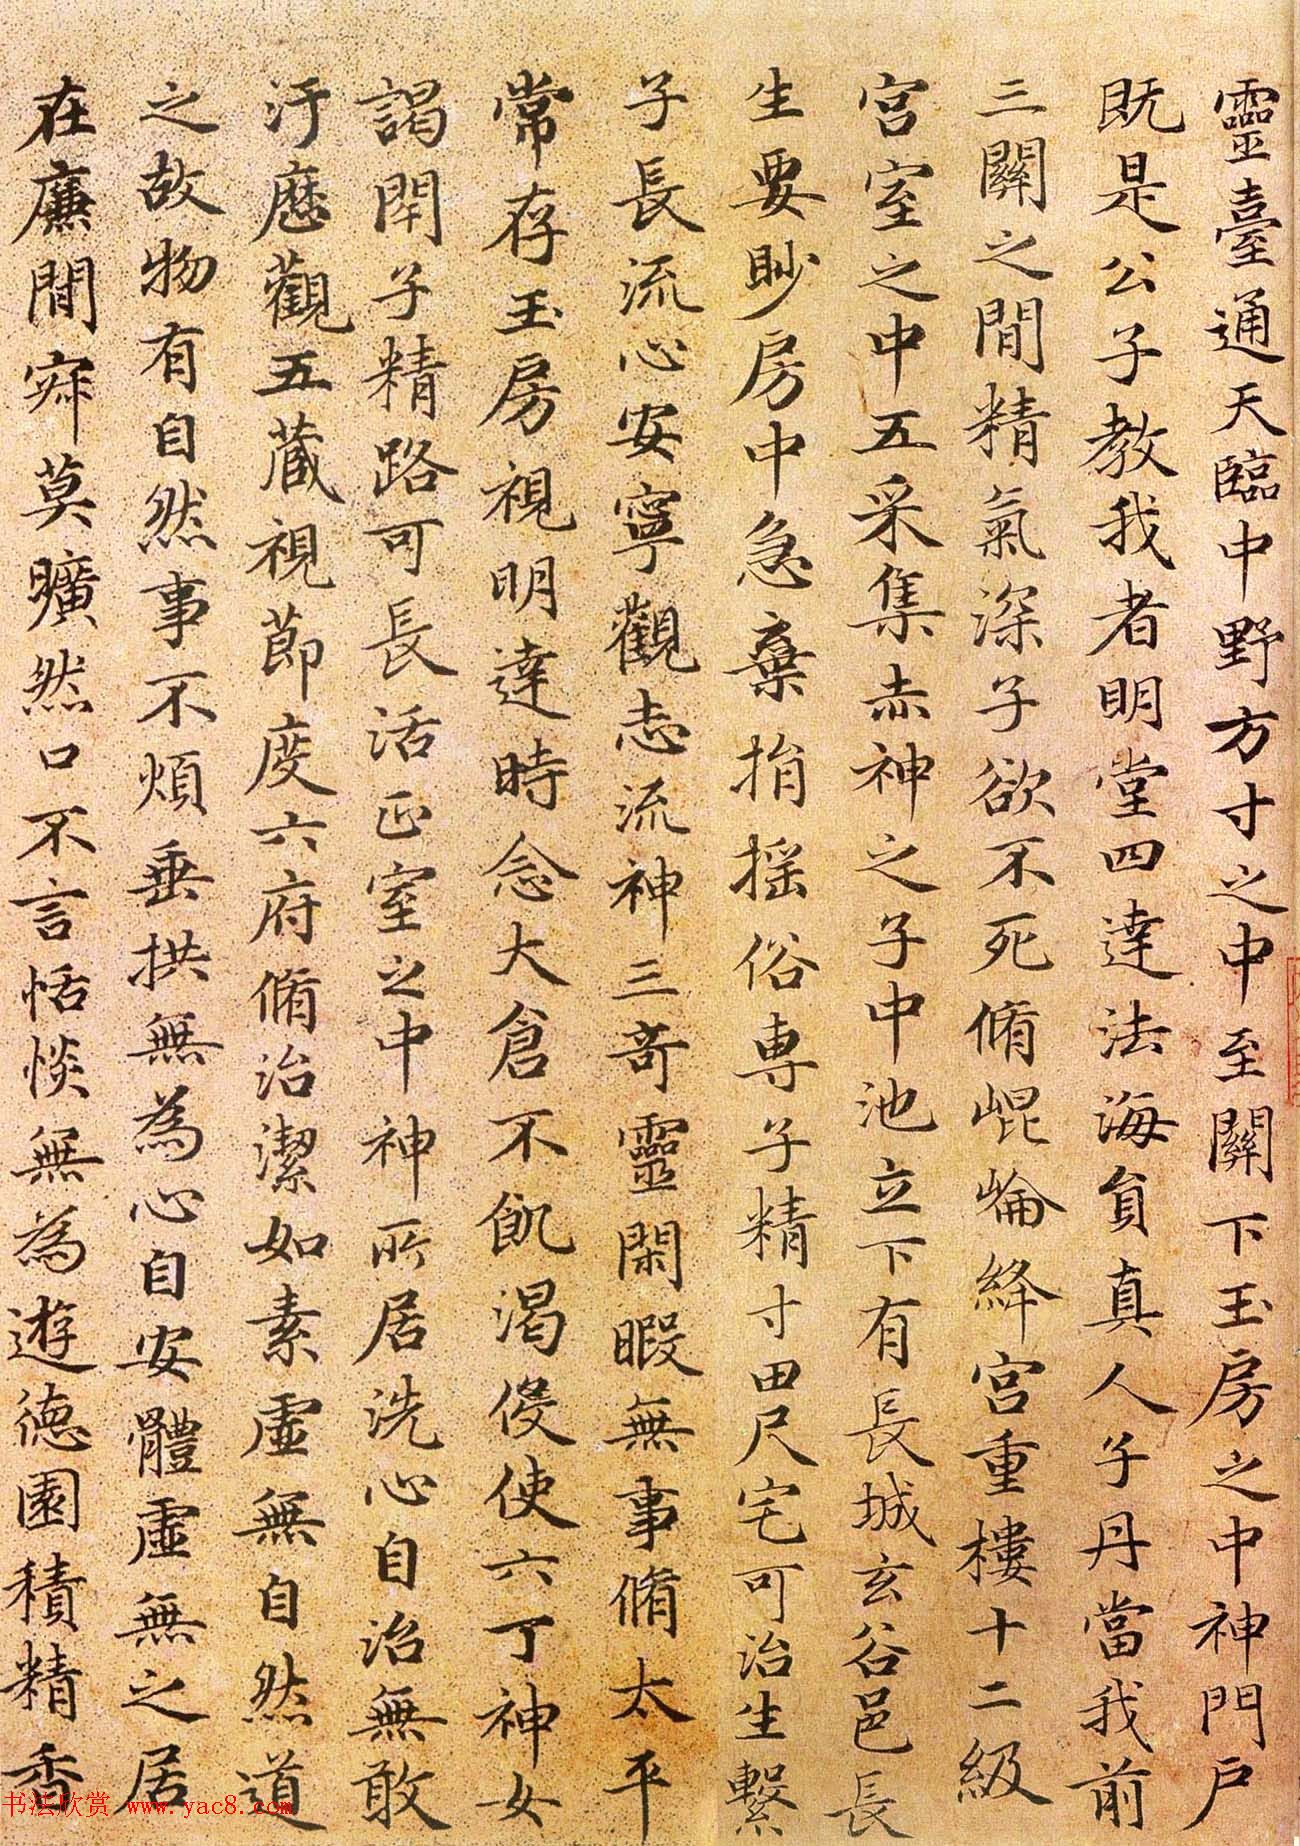 靈臺通天臨中野方寸之中至關下玉房之中神門戶
既是公子教我者明堂四達法海負真人子丹當我前
三關之間精氣深子欲不死脩崐崘絳宮重樓十二級
宮室之中五采集赤神之子中池立下有長城玄谷邑長
生要眇房中急棄捐搖俗専子精寸田尺宅可治生繫
子長流心安寧觀志流神三奇靈閑暇無事脩太平
常存玉房視明達時念大倉不飢渴侵使六丁神女
謁閇子精路可長活正室之中神所居洗心自治無敢
汙歷觀五藏視節度六府脩治潔如素虛無自然道
之故物有自然事不煩垂拱無為心自安體虛無之居
在廉間寂莫曠然口不言恬惔無為遊德園積精香
书法欣赏 www.yac8.com